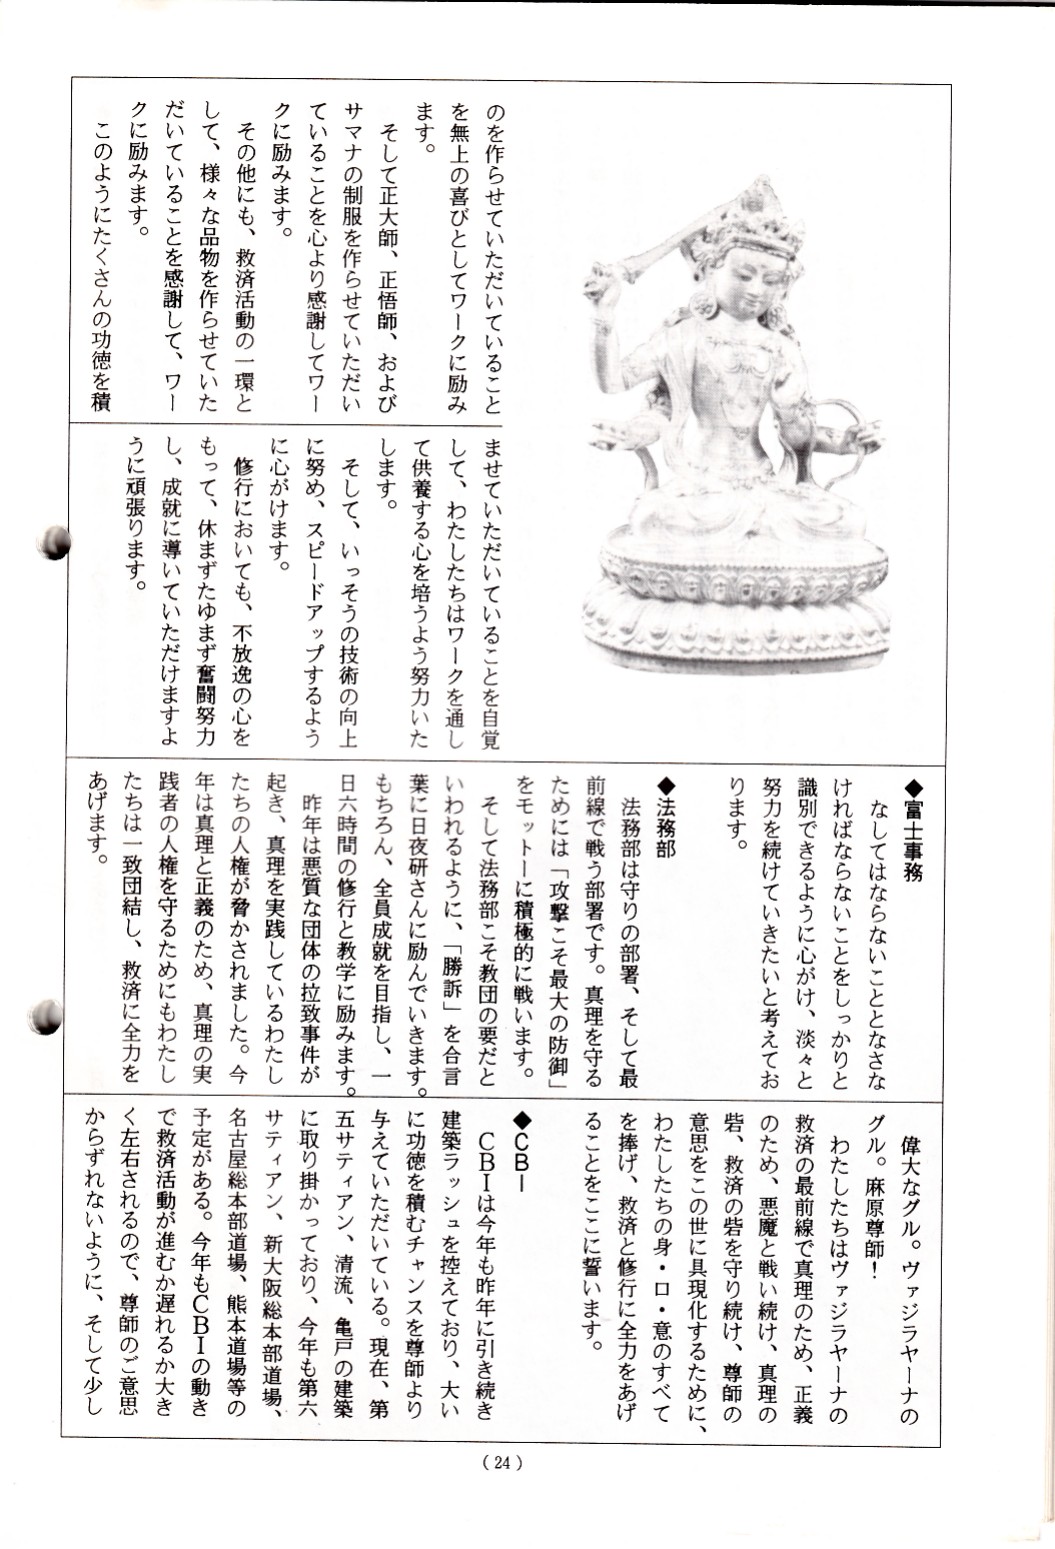 のを作らせていただいていること
を無上の喜びとしてワークに励み
ます。
そして正大師、正悟師、および
サマナの制服を作らせていただい
ていることを心より感謝してワー
クに励みます。
その他にも、救済活動の一環と
して、様々な品物を作らせていた
だいていることを感謝して、ワー
クに励みます。
このようにたくさんの功徳を積
ませていただいていることを自覚
して、わたしたちはワークを通し
て供養する心を培うよう努力いた
します。
そして、いっそうの技術の向上
に努め、スピードアップするよう
に心がけます。
修行においても、不放逸の心を
もって、休まずたゆまず奮闘努力
し、成就に導いていただけますよ
うに頑張ります。
◆富士事務
なしてはならないこととなさな
ければならないことをしっかりと
識別できるように心がけ、淡々と
努力を続けていきたいと考えてお
ります。
◆法務部
法務部は守りの部署、そして最
前線で戦う部署です。真理を守る
ためには「攻撃こそ最大の防御」
をモットーに積極的に戦います。
そして法務部こそ教団の要だと
いわれるように、「勝訴」を合言
葉に日夜研さんに励んでいきます。
もちろん、全員成就を目指し、一
日六時間の修行と教学に励みます。
昨年は悪質な団体の拉致事件が
起き、真理を実践しているわたし
たちの人権が脅かされました。今
年は真理と正義のため、真理の実
践者の人権を守るためにもわたし
たちは一致団結し、救済に全力を
あげます。
偉大なグル。ヴァジラヤーナの
グル。麻原尊師！
わたしたちはヴァジラヤーナの
救済の最前線で真理のため、正義
のため、悪魔と戦い続け、真理の
砦、救済の砦を守り続け、尊師の
意思をこの世に具現化するために、
わたしたちの身・口・意のすべて
を捧げ、救済と修行に全力をあげ
ることをここに誓います。
◆CBI
CBIは今年も昨年に引き続き
建築ラッシュを控えており、大い
に功徳を積むチャンスを尊師より
与えていただいている。現在、第
五サティアン、清流、亀戸の建築
に取り掛かっており、今年も第六
サティアン、新大阪総本部道場、
名古屋総本部道場、熊本道場等の
予定がある。今年もCBIの動き
で救済活動が進むか遅れるか大き
く左右されるので、尊師のご意思
からずれないように、そして少し
（24）